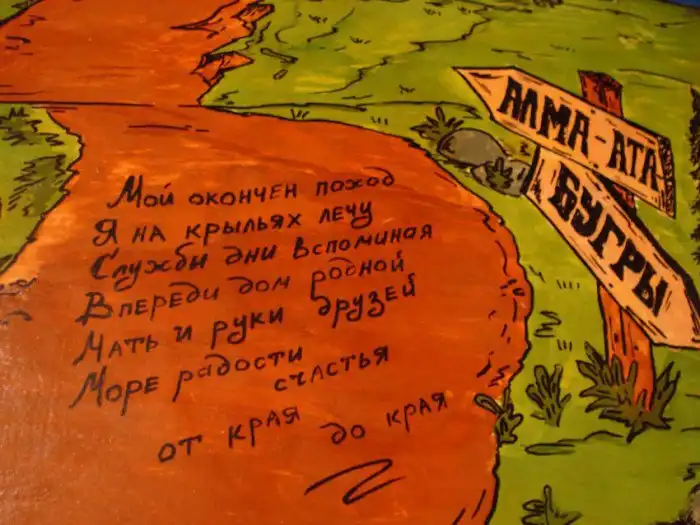 Мой окончен поход
Я на крыльях лечу
Службы дни вспоминая
Впереди дом родной
Мать и руки друзей
Море радости счастья
от края до края
АЛМА-АТА
БУГРЫ